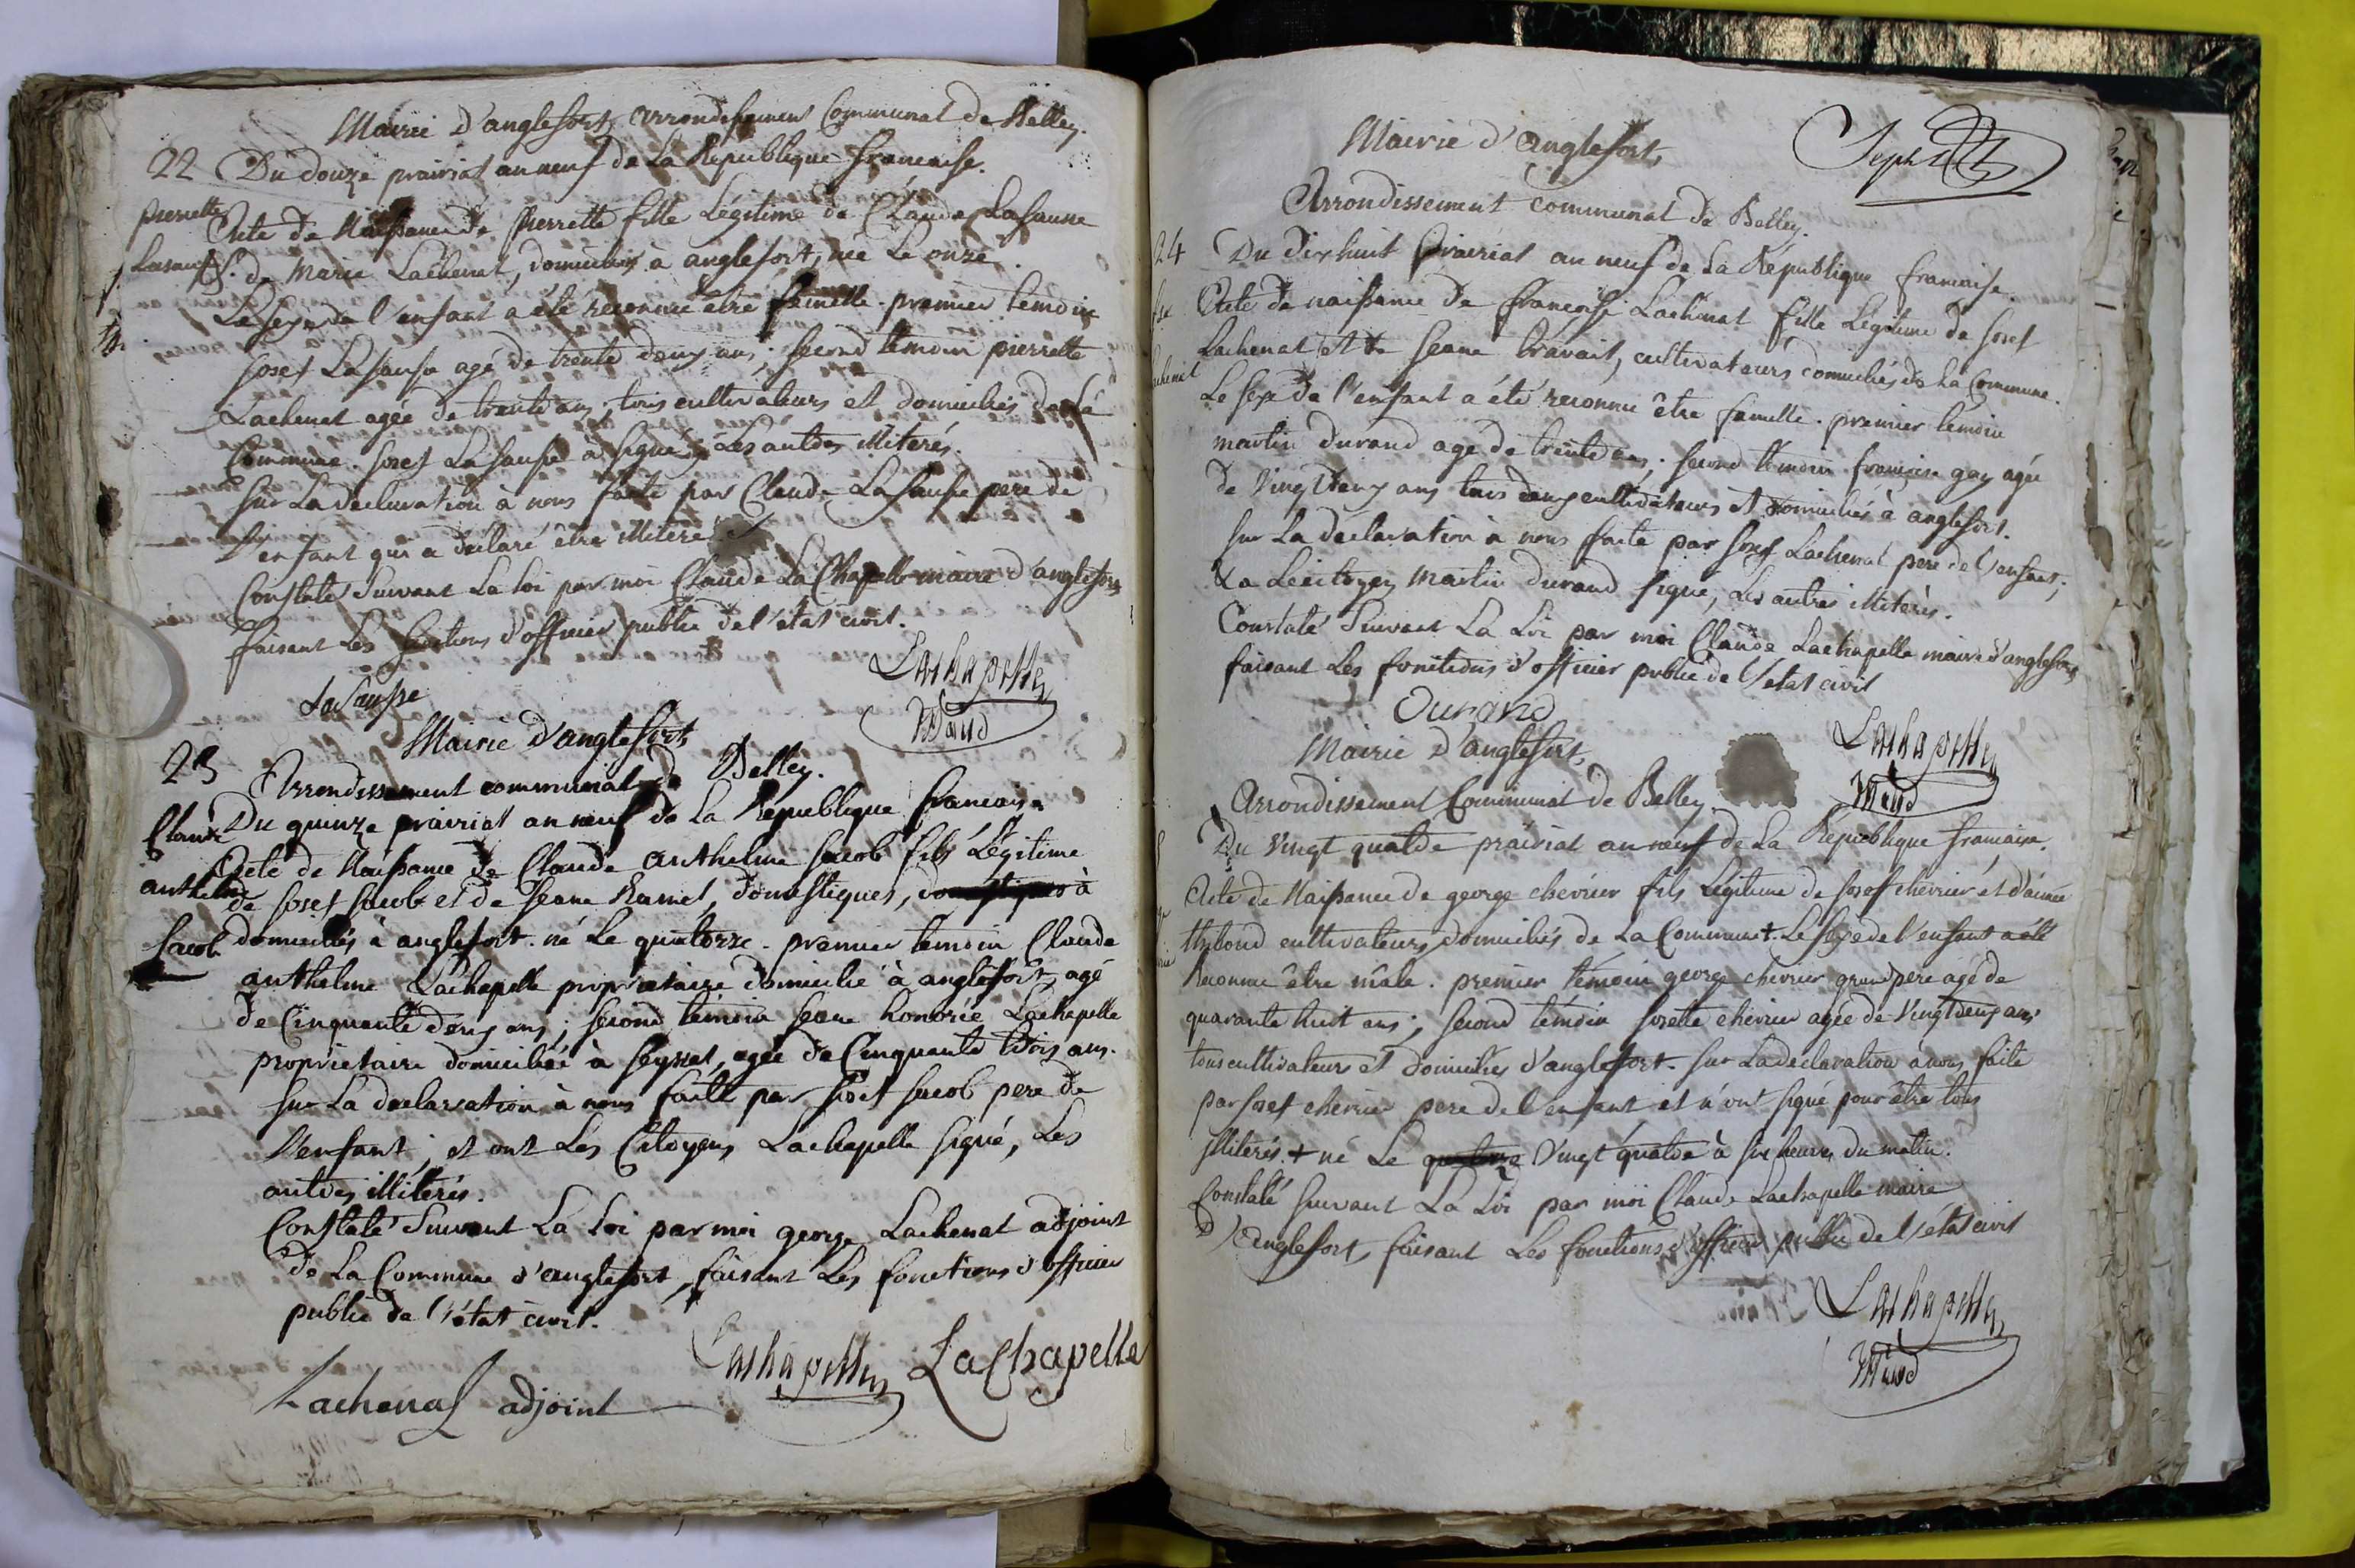 Mairie d'anglefort, arrondissement Communal de Belley.
22 Du douze prairial an neuf de La République francaise.
pierrette
Lasausse
Acte de Naissance de pierrette fille Légitime de Claude Lasausse
de Marie Lachenal, domiciliés à anglefort, née Le onze.
Le sexe de l'enfant a été reconnu être femelle. premier temoin
Josef Lasausse agé de trente deux ans; second temoin pierrette
Lachenal agée de trente ans, tous cultivateurs et domiciliés de la
Commune. Josef Lasausse à signé, les autres illiterés.
Sur La declaration à nous faite par Claude Lasausse pere de
L'enfant qui a déclaré être illiteré
Constaté Suivant La Loi par moi Claude LaChapelle maire d'anglefort
faisant Les fonctions d'officier public de l'état civil.
LaSausse
Lachapelle
Maire
Mairie d'anglefort,
23 Arrondissement communal de Belley.
Claude
anthelme
Jacob
Du quinze prairial an neuf de La République francaise
Acte de Naissance de Claude anthelme Jacob fils Légitime
de Josef Jacob et de Jeane Ramel, domestiques, domestiques à
domiciliés à anglefort. né Le quatorze. premier temoin Claude
anthelme Lachapelle proprietaire domicilié à anglefort, agé
de Cinquante deux ans; second temoin Jeane honorée Lachapelle
proprietaire domiciliée à Seyssel, agée de Cinquante trois ans.
Sur La declaration à nous faite par Josef Jacob pere de
l'enfant; et ont Les Citoyens Lachapelle signé, Les
autres illiterés.
Constaté Suivant La Loi par moi george Lachenal adjoint
de La Commune d'anglefort, faisant Les fonctions d'officier
public de l'état civil.
Lachapelle LaChapelle
Lachenal adjoint
Mairie d'anglefort,
Arrondissement communal de Belley.
24 Du dix huit prairial an neuf de La République francaise.
Acte de naissance de francoise Lachenal fille Légitime de Josef
Lachenal et de Jeane travail, cultivateurs domiciliés de La Commune.
Le sexe de l'enfant a été reconnu être femelle. premier temoin
martin durand agé de trente ans; second témoin francoise gay agée
de Vingt deux ans tous deux cultivateurs et domiciliés à anglefort.
Sur La declaration à nous faite par Josef Lachenal pere de l'enfant;
à Le citoyen Martin durand signé, Les autres illiterés.
Constaté Suivant La Loi par moi Claude Lachapelle maire d'anglefort,
faisant Les fonctions d'officier public de l'état civil
Durand
Lachapelle
Maire
Mairie d'anglefort,
Arrondissement Communal de Belley
Du Vingt quatre prairial an neuf de La République francaise.
Acte de Naissance de george chevrier fils Légitime de Josef chevrier et d'aimée
thibond cultivateurs domiciliés de La Commune +. Le sexe de l'enfant a été
Reconnu être mâle. premier témoin george chevrier grand pere agé de
quarante huit ans; second témoin Josette chevrier agée de Vingt deux ans
tous cultivateurs et domiciliés d'anglefort. Sur La declaration à nous faite
par Josef chevrier pere de l'enfant et n'ont signé pour être tous
illiterés. + né Le quatorze Vingt quatre à six heures du matin.
Constaté Suivant La Loi par moi Claude Lachapelle maire
d'anglefort, faisant Les fonctions d'officier public de l'état civil
Lachapelle
Maire